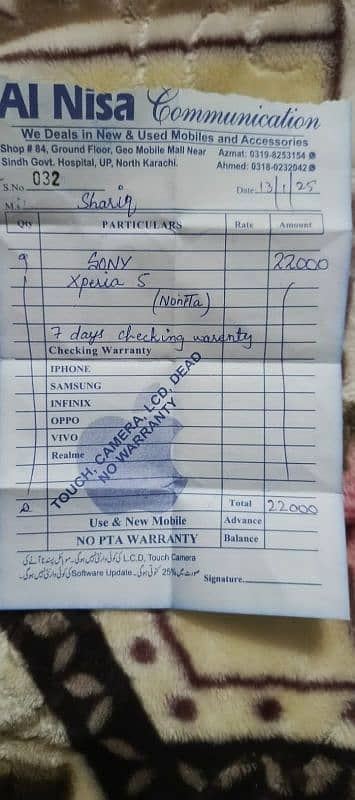 Al Nisa Communication
We Deals in New & Used Mobiles and Accessories
Shop # 84, Ground Floor, Geo Mobile Mall Near Azmat: 0319-8253154
Sindh Govt. Hospital, UP, North Karachi. Ahmed: 0318-0232042
S.No 032 Date 13/1/25
M/s Shariq
Qty PARTICULARS Rate Amount
SONY 22000
Xperia 5
(NonPTa)
7 days checking warenty
Checking Warranty
IPHONE
SAMSUNG
INFINIX
OPPO
VIVO
Realme
TOUCH, CAMERA, LCD, DEAD
NO WARRANTY
Total 22000
Use & New Mobile Advance
NO PTA WARRANTY Balance
L.C.D, Touch Camera کی کوئی وارنٹی نہیں ہوگی۔ موبائل پسند نا آنے کی
صورت میں %25 کٹوتی ہوگی۔ Software Update کی کوئی وارنٹی نہیں ہوگی۔
Signature